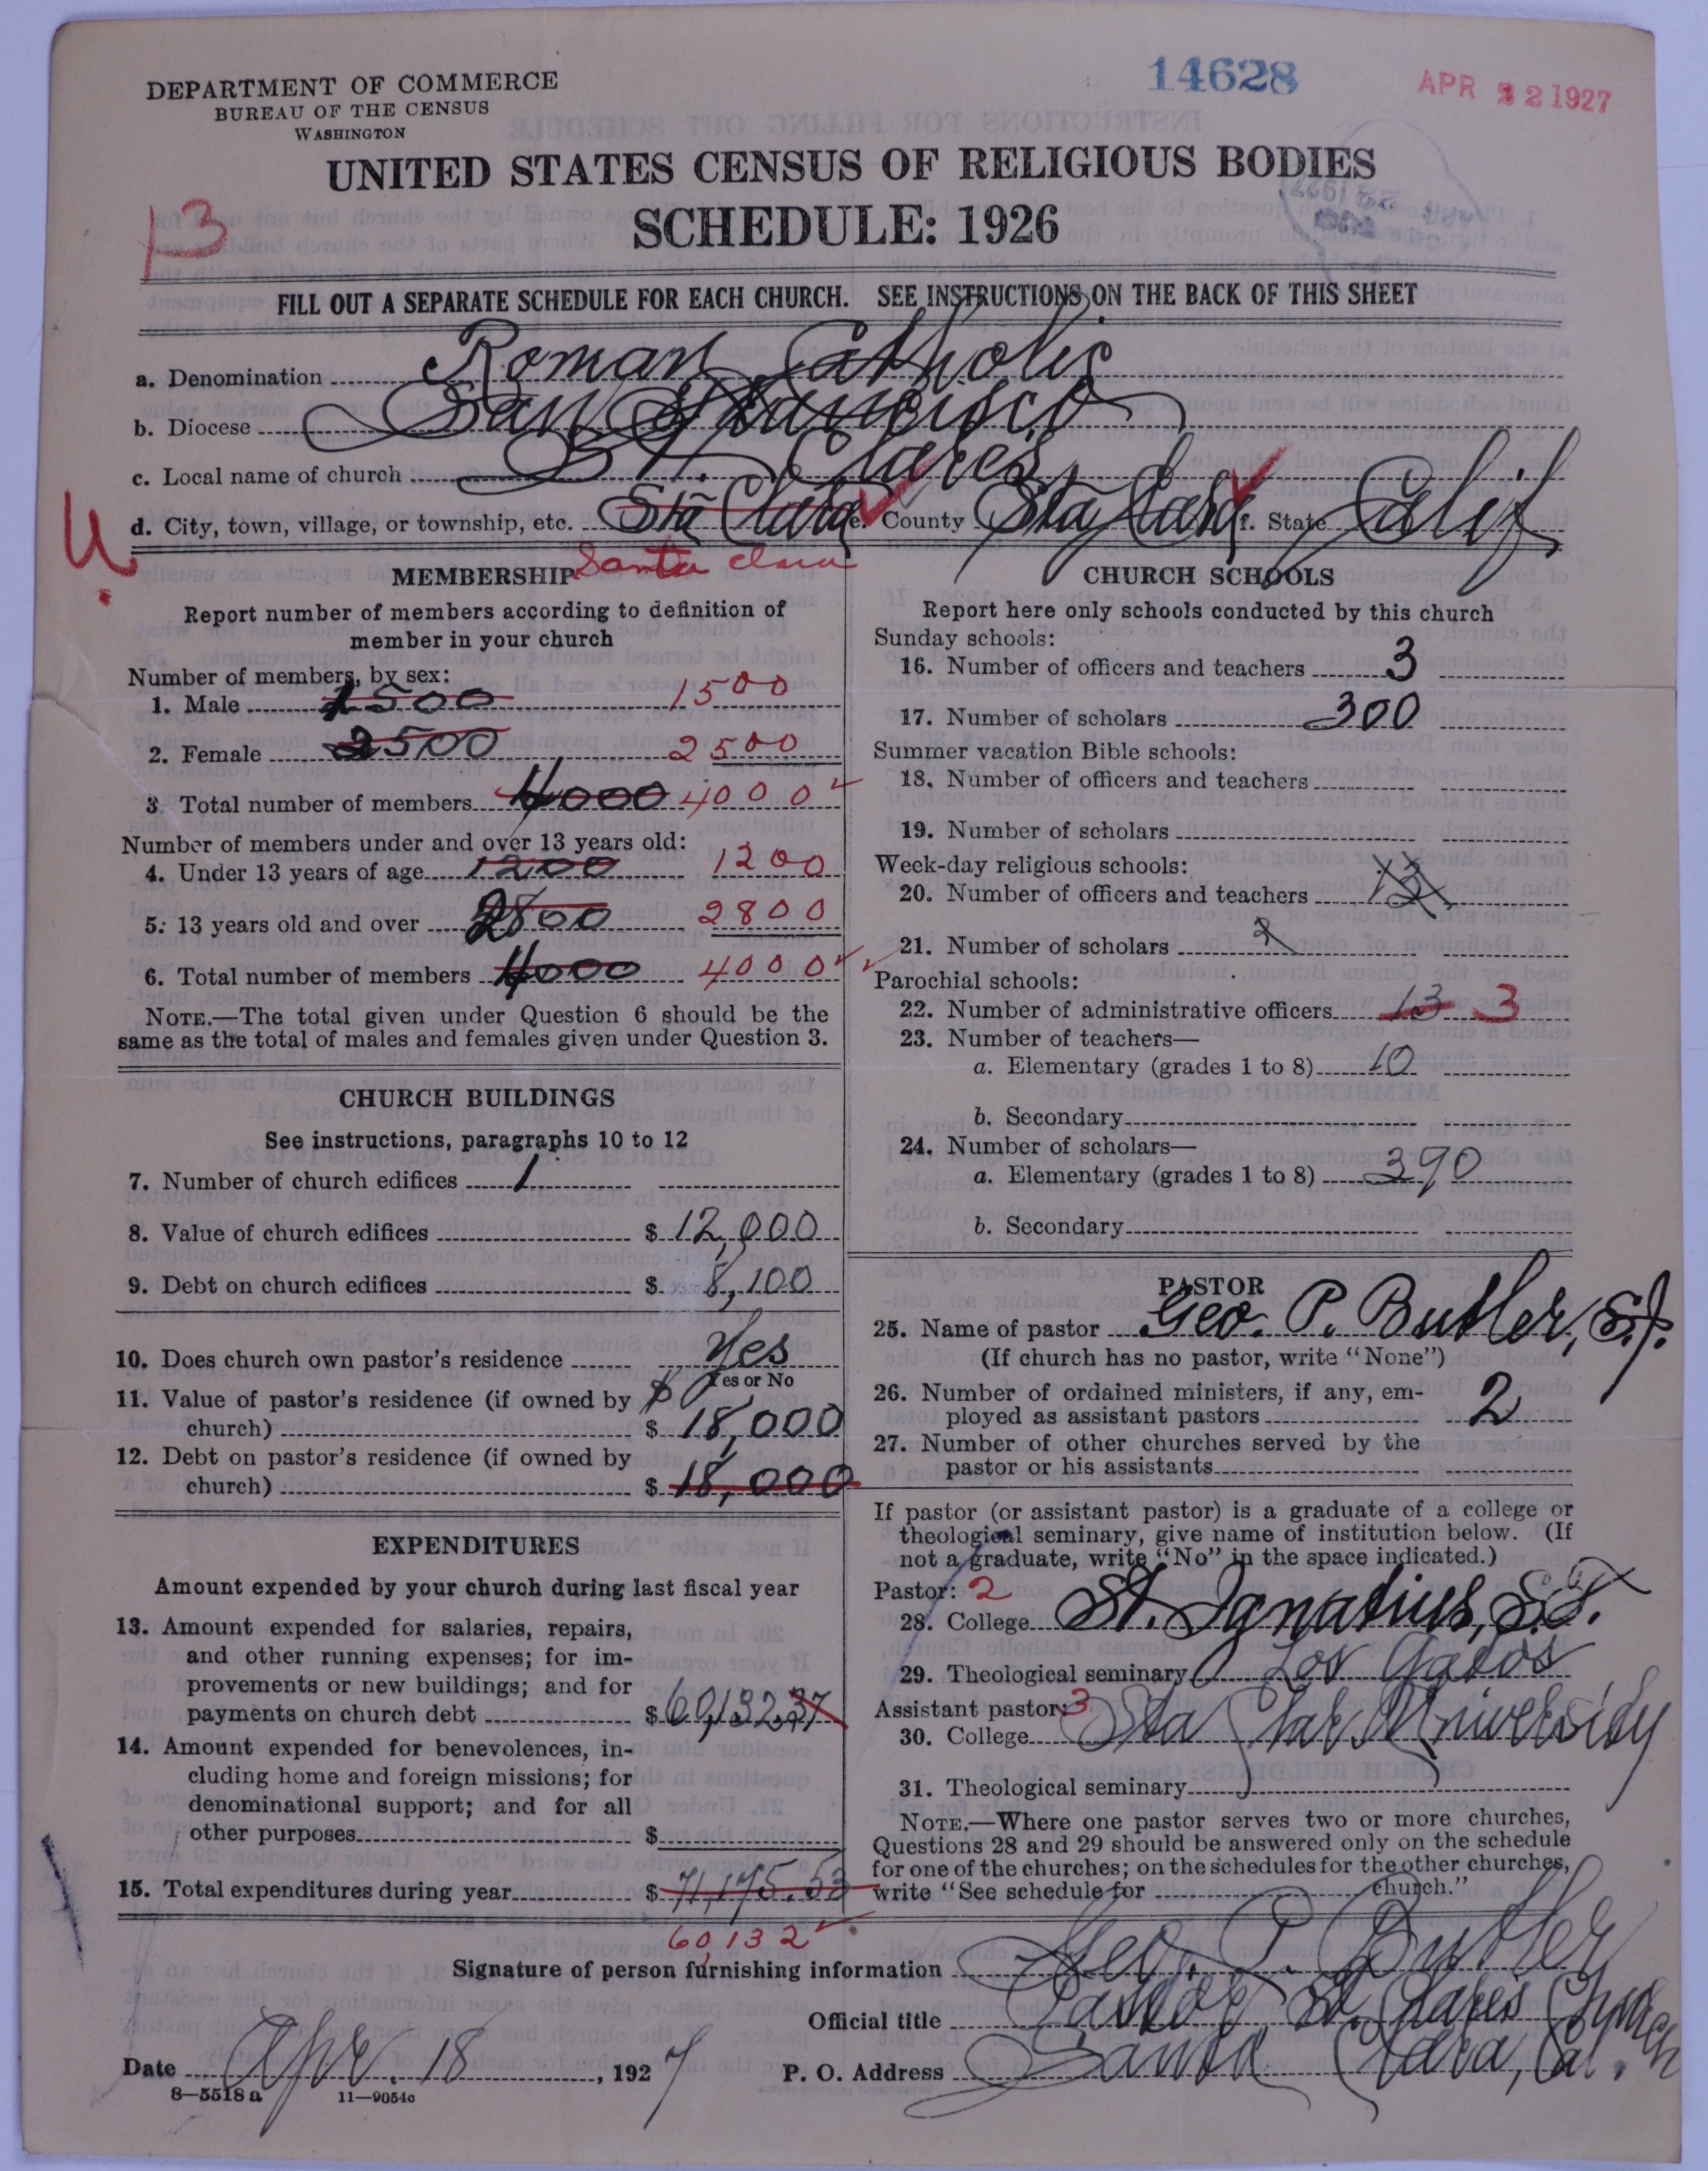 DEPARTMENT OF COMMERCE
BUREAU OF THE CENSUS
WASHINGTON
14628
APR 22 1927
UNITED STATES CENSUS OF RELIGIOUS BODIES
SCHEDULE: 1926
13
FILL OUT A SEPARATE SCHEDULE FOR EACH CHURCH. SEE INSTRUCTIONS ON THE BACK OF THIS SHEET
a. Denomination Roman Catholic
b. Diocese San Francisco
c. Local name of church St. Clare's
d. City, town, village, or township, etc. Sta Clara e. County Sta Clara f. State Calif
U.
Santa Clara
MEMBERSHIP
Report number of members according to definition of
member in your church
Number of members, by sex:
1. Male 1500 1500
2. Female 2500 2500
3. Total number of members 4000 4000
Number of members under and over 13 years old:
4. Under 13 years of age 1200 1200
5. 13 years old and over 2800 2800
6. Total number of members 4000 4000
NOTE.—The total given under Question 6 should be the
same as the total of males and females given under Question 3.
CHURCH BUILDINGS
See instructions, paragraphs 10 to 12
7. Number of church edifices 1
8. Value of church edifices $ 12,000
9. Debt on church edifices $ 8,100
10. Does church own pastor's residence Yes
Yes or No
11. Value of pastor's residence (if owned by
church) $ 18,000
12. Debt on pastor's residence (if owned by
church) $ 18,000
EXPENDITURES
Amount expended by your church during last fiscal year
13. Amount expended for salaries, repairs,
and other running expenses; for im-
provements or new buildings; and for
payments on church debt $ 60,132.37
14. Amount expended for benevolences, in-
cluding home and foreign missions; for
denominational support; and for all
other purposes $
15. Total expenditures during year $ 71,175.53
60,132
CHURCH SCHOOLS
Report here only schools conducted by this church
Sunday schools:
16. Number of officers and teachers 3
17. Number of scholars 300
Summer vacation Bible schools:
18. Number of officers and teachers
19. Number of scholars
Week-day religious schools:
20. Number of officers and teachers 13
21. Number of scholars
Parochial schools:
22. Number of administrative officers 13 3
23. Number of teachers—
a. Elementary (grades 1 to 8) 10
b. Secondary
24. Number of scholars—
a. Elementary (grades 1 to 8) 390
b. Secondary
PASTOR
25. Name of pastor Geo. P. Butler, S.J.
(If church has no pastor, write "None")
26. Number of ordained ministers, if any, em-
ployed as assistant pastors 2
27. Number of other churches served by the
pastor or his assistants
If pastor (or assistant pastor) is a graduate of a college or
theological seminary, give name of institution below. (If
not a graduate, write "No" in the space indicated.)
Pastor: 2
28. College St. Ignatius, S.F.
29. Theological seminary Los Gatos
Assistant pastor: 3
30. College Sta Clara University
31. Theological seminary
NOTE.—Where one pastor serves two or more churches,
Questions 28 and 29 should be answered only on the schedule
for one of the churches; on the schedules for the other churches,
write "See schedule for church."
Signature of person furnishing information Geo. P. Butler
Official title Pastor, St. Clare's Church
Date Apr. 18, 1927 P. O. Address Santa Clara, Cal.
8—5518a 11—9054c